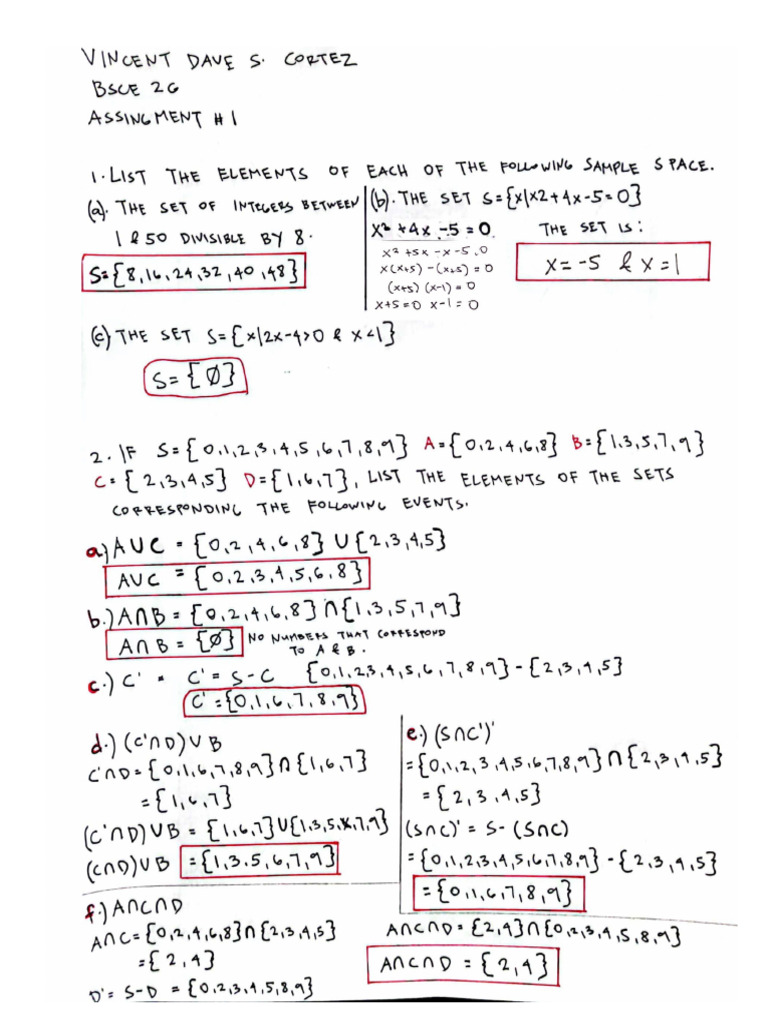 VINCENT DAVE S. CORTEZ
BSCE 2G
ASSINGMENT #1
1. LIST THE ELEMENTS OF EACH OF THE FOLLOWING SAMPLE SPACE.
(a). THE SET OF INTEGERS BETWEEN
1 & 50 DIVISIBLE BY 8.
S={8,16,24,32,40,48}
(b). THE SET S={x|x2+4x-5=0}
x²+4x-5=0
x²+5x-x-5=0
x(x+5)-(x+5)=0
(x+5)(x-1)=0
x+5=0 x-1=0
THE SET IS:
x=-5 & x=1
(c) THE SET S={x|2x-4>0 & x<1}
S={∅}
2. IF S={0,1,2,3,4,5,6,7,8,9} A={0,2,4,6,8} B={1,3,5,7,9}
C={2,3,4,5} D={1,6,7}, LIST THE ELEMENTS OF THE SETS
CORRESPONDING THE FOLLOWING EVENTS.
a.) A∪C = {0,2,4,6,8}∪{2,3,4,5}
A∪C = {0,2,3,4,5,6,8}
b.) A∩B = {0,2,4,6,8}∩{1,3,5,7,9}
A∩B = {∅} NO NUMBERS THAT CORRESPOND
TO A & B.
c.) C' = C'=S-C {0,1,2,3,4,5,6,7,8,9}-{2,3,4,5}
C'={0,1,6,7,8,9}
d.) (C'∩D)∪B
C'∩D={0,1,6,7,8,9}∩{1,6,7}
={1,6,7}
(C'∩D)∪B = {1,6,7}∪{1,3,5,7,9}
(C∩D)∪B ={1,3,5,6,7,9}
e.) (S∩C')'
={0,1,2,3,4,5,6,7,8,9}∩{2,3,4,5}
={2,3,4,5}
(S∩C)' = S-(S∩C)
={0,1,2,3,4,5,6,7,8,9}-{2,3,4,5}
={0,1,6,7,8,9}
f.) A∩C∩D
A∩C={0,2,4,6,8}∩{2,3,4,5}
={2,4}
D'= S-D = {0,2,3,4,5,8,9}
A∩C∩D={2,4}∩{0,2,3,4,5,8,9}
A∩C∩D={2,4}